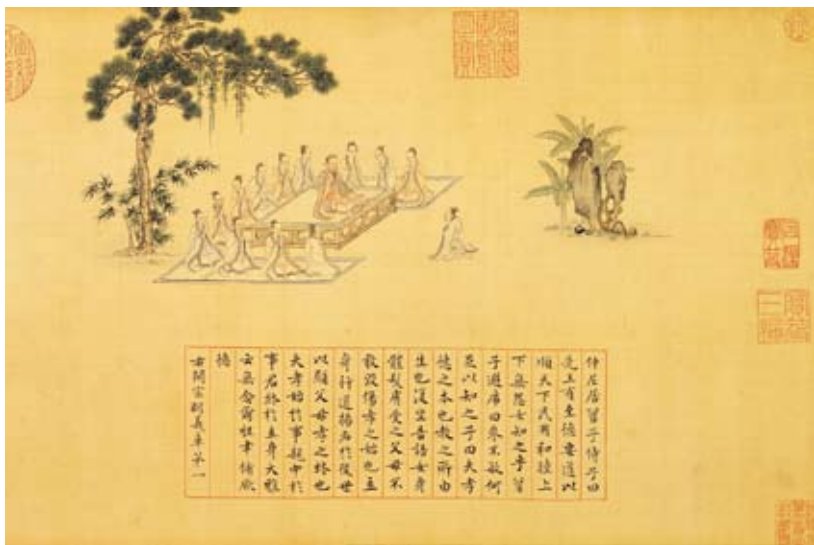 仲尼居曾子侍子曰
先王有至德要道以
順天下民用和睦上
下無怨女知之乎曾
子避席曰參不敏何
足以知之子曰夫孝
德之本也教之所由
生也復坐吾語女身
體髮膚受之父母不
敢毀傷孝之始也立
身行道揚名於後世
以顯父母孝之終也
夫孝始於事親中於
事君終於立身大雅
云無念爾祖聿修厥
德
右開宗明義章第一
嘉慶御覽之寶
石渠寶笈
寶笈三編